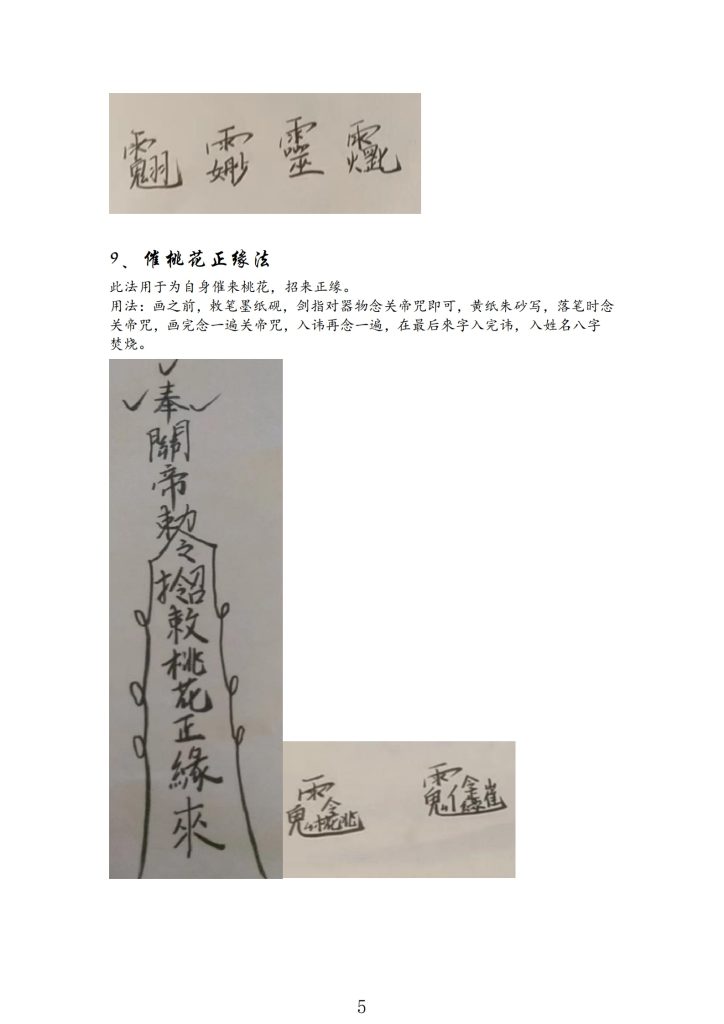 9、催桃花正缘法
此法用于为自身催来桃花，招来正缘。
用法：画之前，敕笔墨纸砚，剑指对器物念关帝咒即可，黄纸朱砂写，落笔时念
关帝咒，画完念一遍关帝咒，入讳再念一遍，在最后來字入完讳，入姓名八字
焚烧。
奉
關
帝
勅
令
招
敕
桃
花
正
緣
來
5